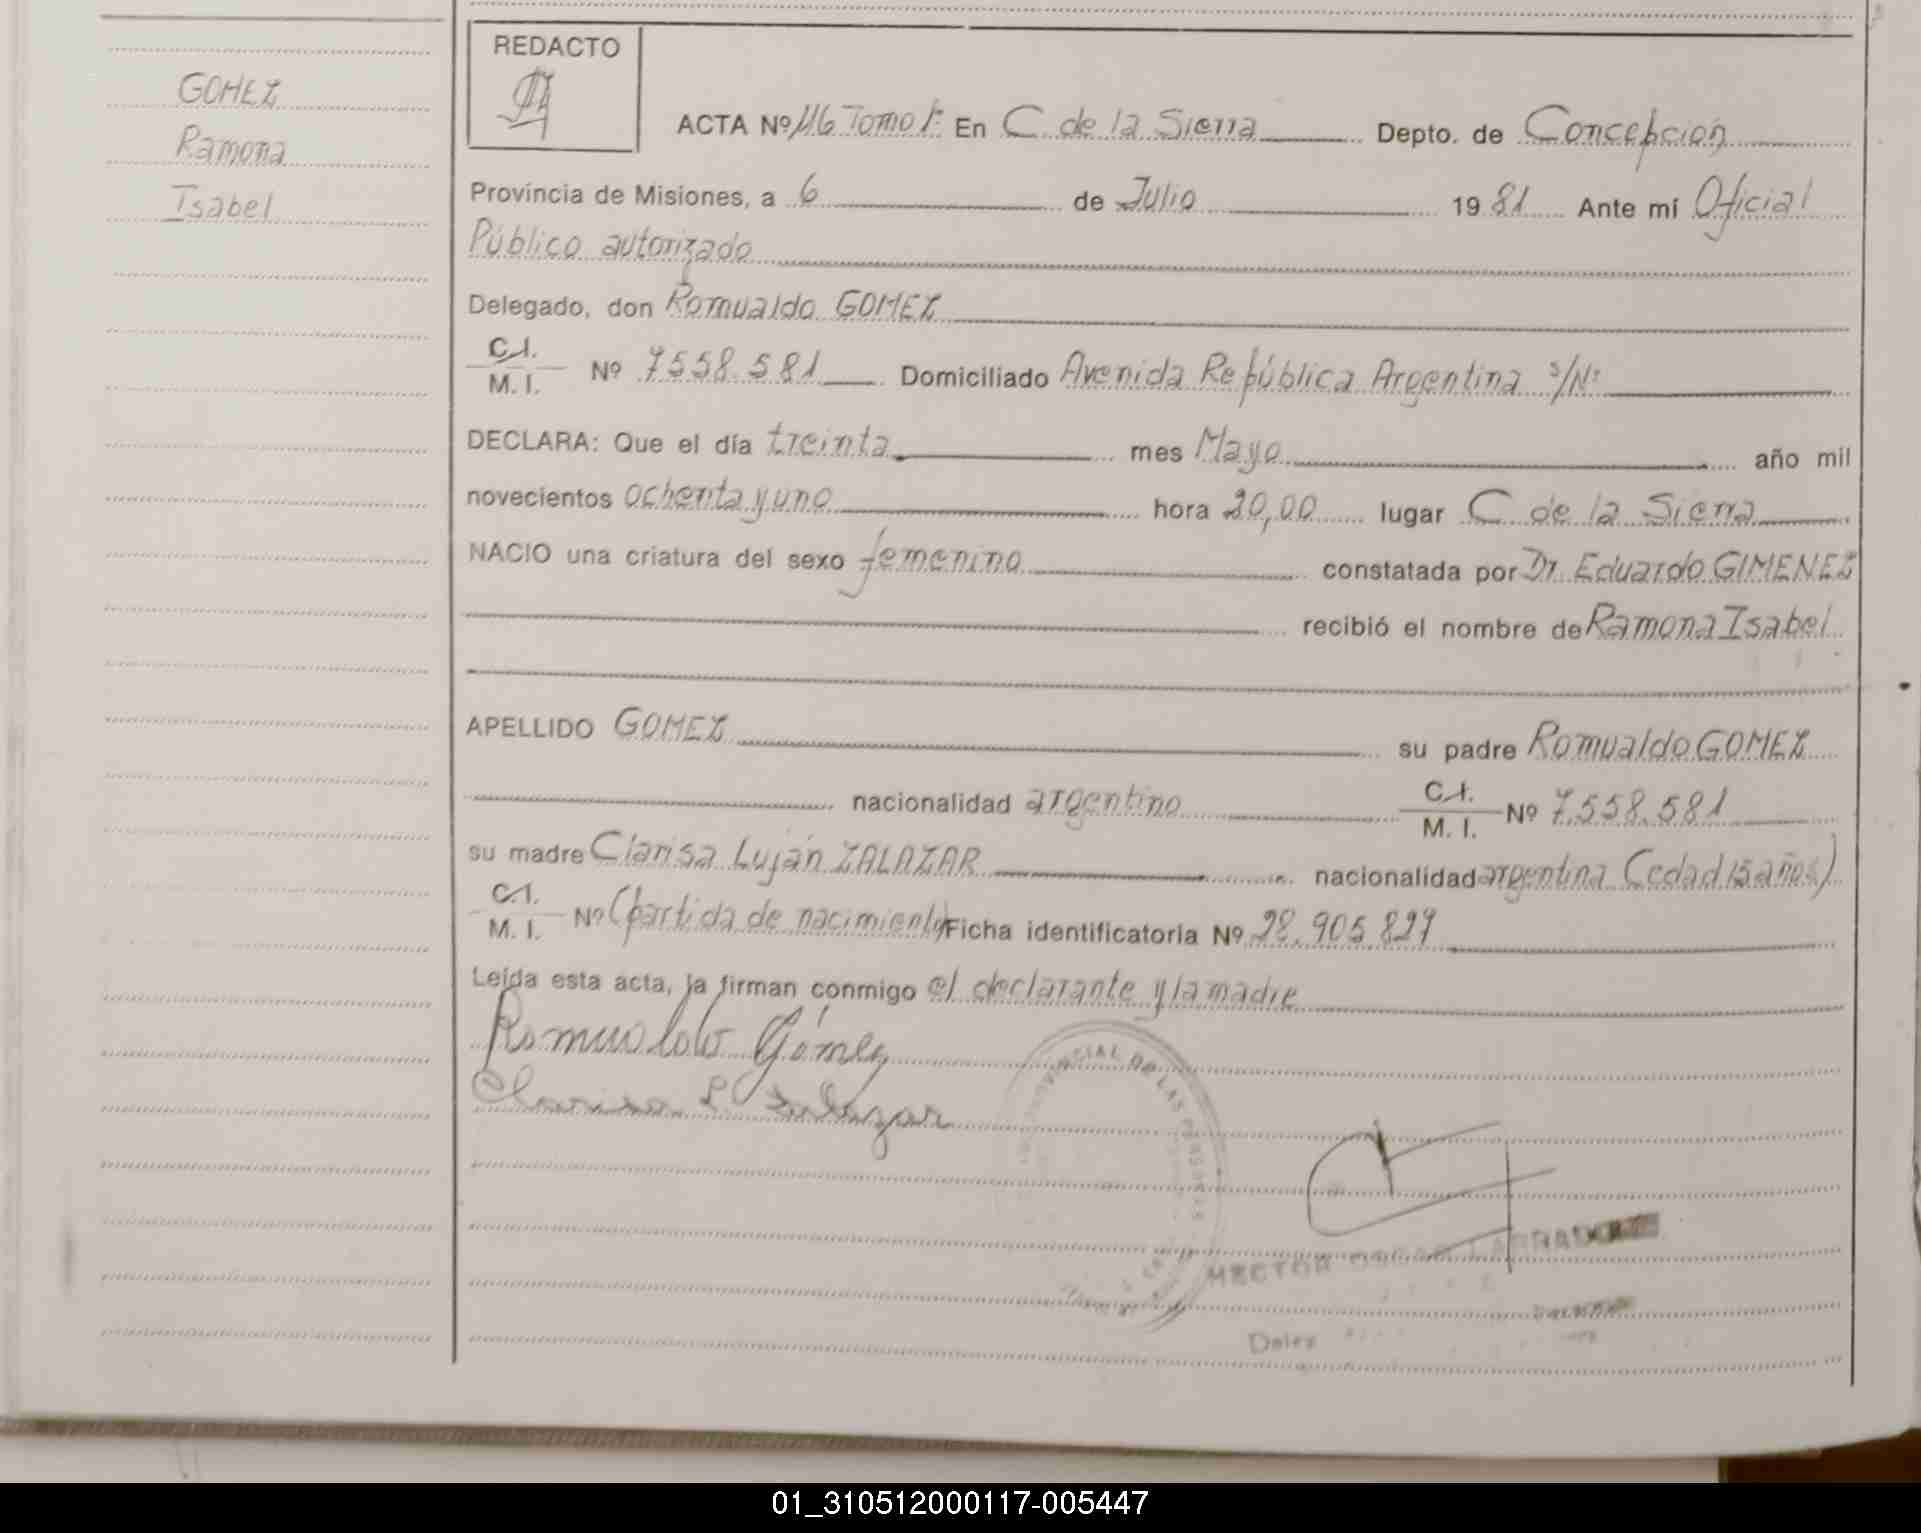 GOMEZ
Ramona
Isabel
REDACTO
ACTA Nº 116 Tomo 1º En C de la Sierra Depto. de Concepción
Provincia de Misiones, a 6 de Julio 1981 Ante mí Oficial
Público autorizado
Delegado, don Romualdo GOMEZ
C.I. M. I. Nº 7558.581 Domiciliado Avenida República Argentina s/Nº
DECLARA: Que el día treinta mes Mayo año mil
novecientos ochenta y uno hora 20,00 lugar C de la Sierra
NACIO una criatura del sexo femenino constatada por Dr. Eduardo GIMENEZ
recibió el nombre de Ramona Isabel
APELLIDO GOMEZ su padre Romualdo GOMEZ
nacionalidad argentino C.I. M. I. Nº 7.558.581
su madre Clarisa Luján ZALAZAR nacionalidad argentina (edad 15 años)
C.I. M. I. Nº (partida de nacimiento) Ficha identificatoria Nº 28.905.827
Leída esta acta, la firman conmigo el declarante y la madre
Romualdo Gómez
Clarisa L. Zalazar
PROVINCIAL DE LAS PERSONAS
HECTOR OSCAR
01_310512000117-005447